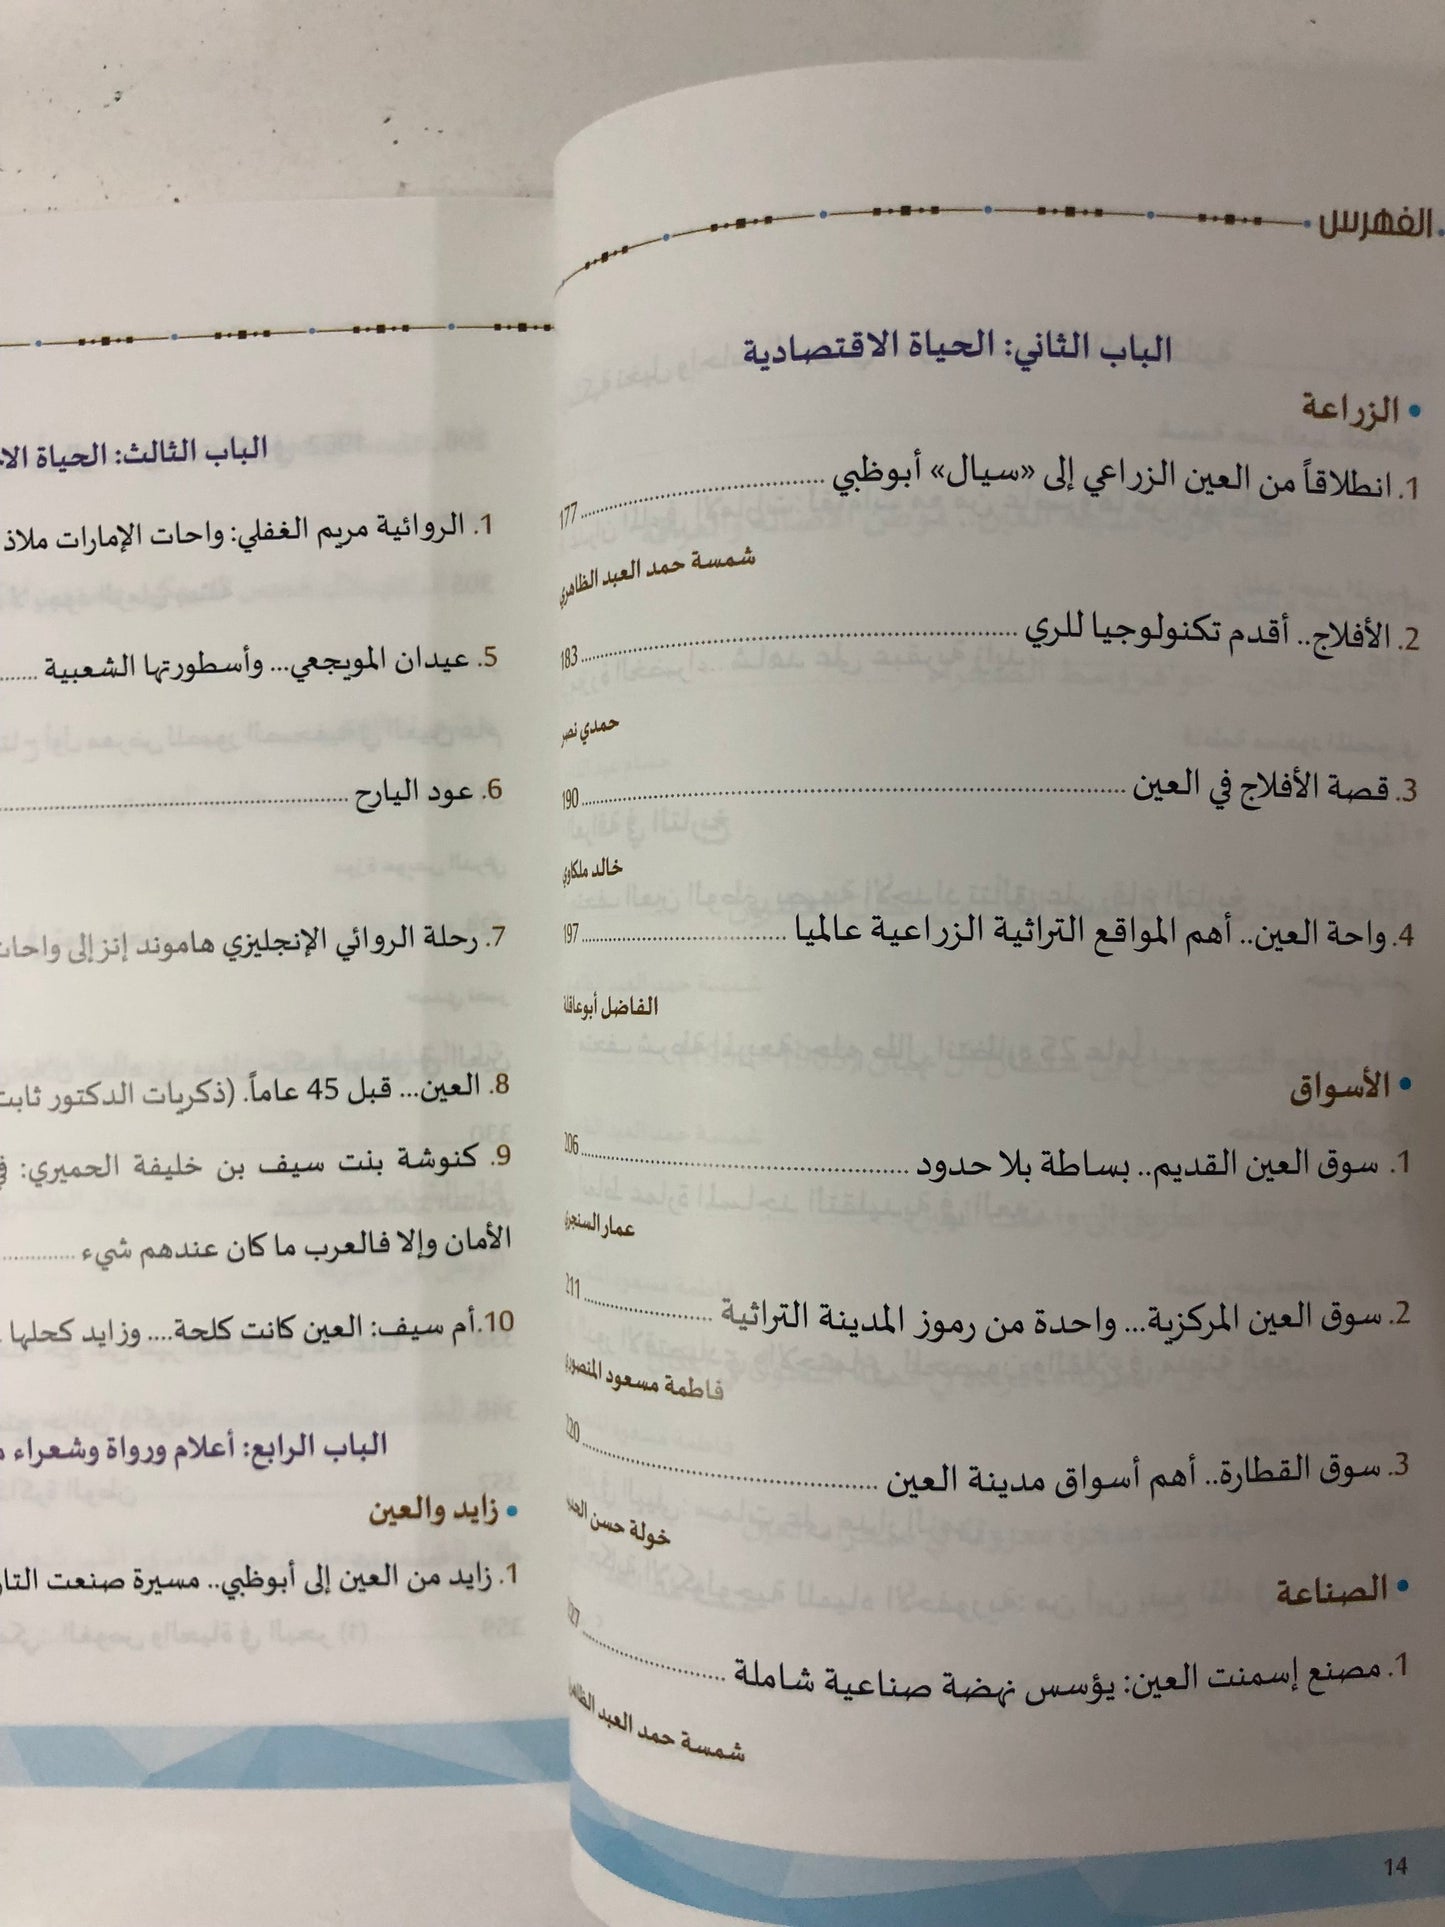 الفهرس
الباب الثاني: الحياة الاقتصادية
• الزراعة
1. انطلاقاً من العين الزراعي إلى «سيال» أبوظبي ........ 177
شمسة حمد العبد الظاهري
2. الأفلاج.. أقدم تكنولوجيا للري ........ 183
حمدي نصر
3. قصة الأفلاج في العين ........ 190
خالد ملكاوي
4. واحة العين.. أهم المواقع التراثية الزراعية عالميا ........ 197
الفاضل أبوعاقلة
• الأسواق
1. سوق العين القديم.. بساطة بلا حدود ........ 206
عمار السنجري
2. سوق العين المركزية... واحدة من رموز المدينة التراثية ........ 211
فاطمة مسعود المنصوري
3. سوق القطارة.. أهم أسواق مدينة العين ........
خولة حسن
• الصناعة
1. مصنع إسمنت العين: يؤسس نهضة صناعية شاملة ........
شمسة حمد العبد
14
الباب الثالث: الحياة
1. الروائية مريم الغفلي: واحات الإمارات ملاذ
5. عيدان المويجعي... وأسطورتها الشعبية ........
6. عود اليارح ........
7. رحلة الروائي الإنجليزي هاموند إنز إلى
8. العين... قبل 45 عاماً. (ذكريات الدكتور ثابت
9. كنوشة بنت سيف بن خليفة الحميري:
الأمان وإلا فالعرب ما كان عندهم شيء ........
10.أم سيف: العين كانت كلحة.... وزايد كحلها
الباب الرابع: أعلام ورواة وشعراء
• زايد والعين
1. زايد من العين إلى أبوظبي.. مسيرة صنعت